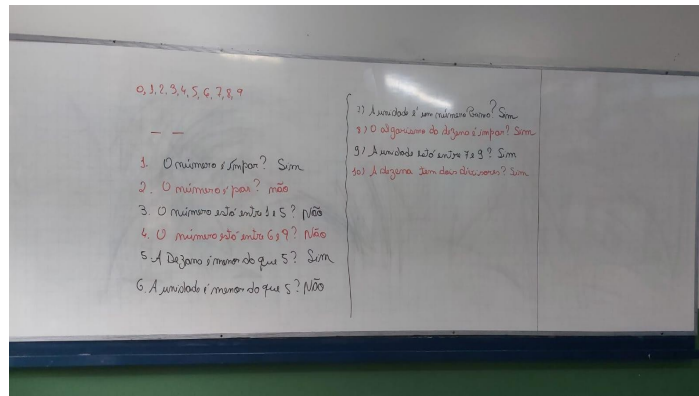 0, 1, 2, 3, 4, 5, 6, 7, 8, 9
1. O número é ímpar? Sim
2. O número é par? não
3. O número está entre 1 e 5? Não
4. O número está entre 6 e 9? Não
5. A Dezena é menor do que 5? Sim
6. A unidade é menor do que 5? Não
7) A unidade é um número Primo? Sim
8) O algarismo da dezena é ímpar? Sim
9) A unidade está entre 7 e 9? Sim
10) A dezena tem dois divisores? Sim